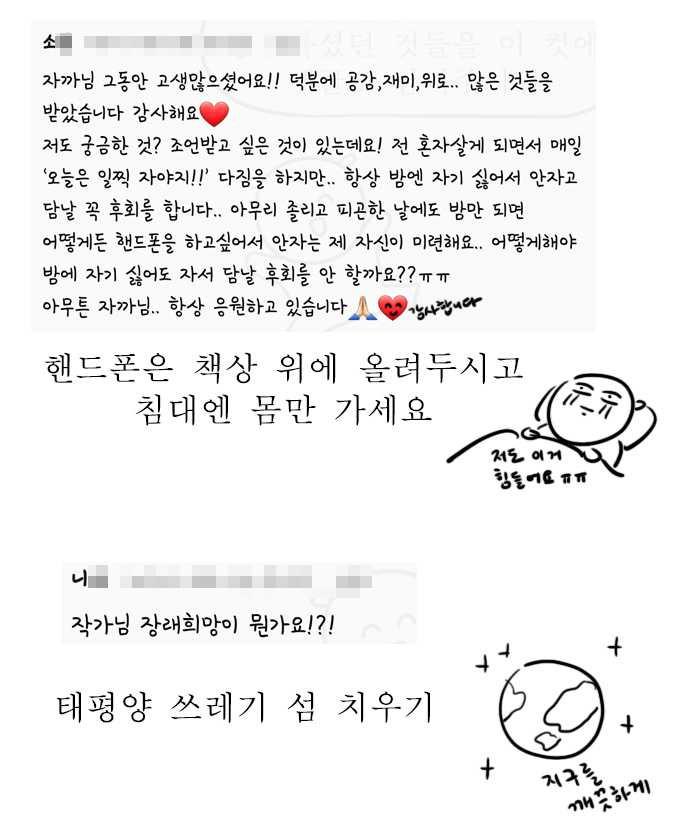 쇠
자까님 그동안 고생많으셨어요!! 덕분에 공감,재미,위로.. 많은 것들을
받았습니다 감사해요❤️
저도 궁금한 것? 조언받고 싶은 것이 있는데요! 전 혼자살게 되면서 매일
‘오늘은 일찍 자야지!!’ 다짐을 하지만.. 항상 밤엔 자기 싫어서 안자고
담날 꼭 후회를 합니다.. 아무리 졸리고 피곤한 날에도 밤만 되면
어떻게든 핸드폰을 하고싶어서 안자는 제 자신이 미련해요.. 어떻게해야
밤에 자기 싫어도 자서 담날 후회를 안 할까요??ㅠㅠ
아무튼 자까님.. 항상 응원하고 있습니다🙏🏻 감사합니다
핸드폰은 책상 위에 올려두시고
침대엔 몸만 가세요
저도 이거
힘들어요 ㅠㅠ
니
작가님 장래희망이 뭔가요!?!
태평양 쓰레기 섬 치우기
지구를
깨끗하게